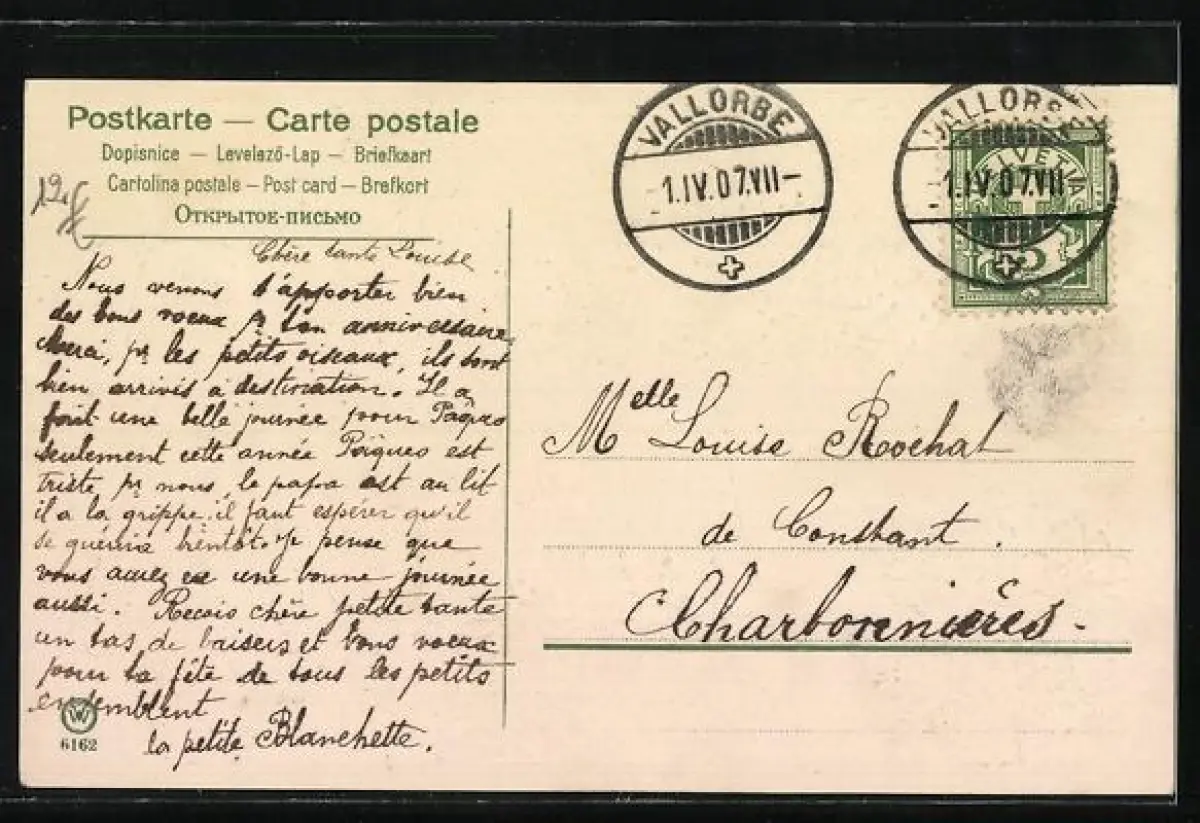 Postkarte — Carte postale
Dopisnice — Levelező-Lap — Briefkaart
Cartolina postale — Post card — Brefkort
Открытое-письмо
Chère tante Louise
Nous venons t'apporter bien
des bons voeux pr ton anniversaire
Merci, pr les petits oiseaux, ils sont
bien arrivés à destination. Il a
fait une belle journée pour Pâques
seulement cette année Pâques est
triste pr nous, le papa est au lit
il a la grippe, il faut espérer qu'il
se guérira bientôt. Je pense que
vous aurez eu une bonne journée
aussi. Reçois chère petite tante
un tas de baisers et bons voeux
pour ta fête de tous les petits
ensemblent
la petite Blanchette.
W
6162
VALLORBE
1.IV.07.VII–
VALLORBE
1.IV.07.VII–
HELVETIA
5
Melle Louise Rochat
de Constant.
Charbonnières.